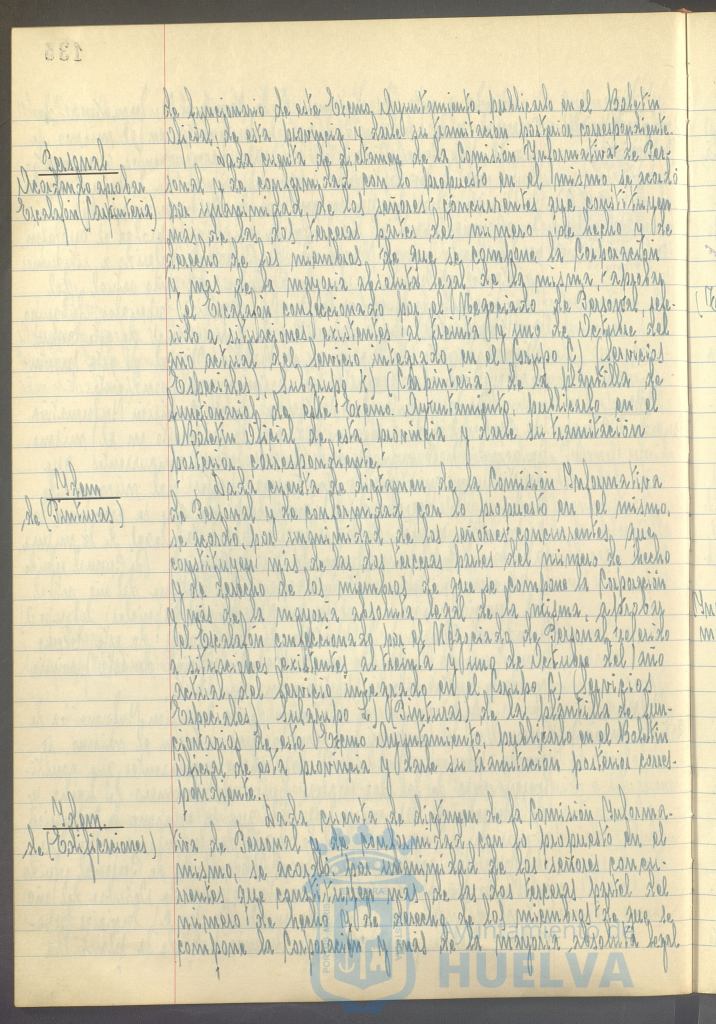 135
de funcionario de este Excmo. Ayuntamiento, publicarlo en el Boletín
Oficial, de esta provincia y darle su tramitación posterior correspondiente.
Personal
Acordando aprobar
Escalafón (Carpintería)
Dada cuenta de dictamen de la Comisión Informativa de Per-
sonal y de conformidad con lo propuesto en el mismo se acordó
por unanimidad, de los señores concurrentes que constituyen
más de las dos terceras partes del número de hecho y de
derecho de los miembros de que se compone la Corporación
y más de la mayoría absoluta legal de la misma, aprobar
el Escalafón confeccionado por el Negociado de Personal, refe-
rido a situaciones existentes al treinta y uno de Octubre del
año actual del servicio integrado en el Grupo C) (Servicios
Especiales) Subgrupo K) (Carpintería) de la plantilla de
funcionarios de este Excmo. Ayuntamiento, publicarlo en el
Boletín Oficial de esta provincia y darle su tramitación
posterior correspondiente.
Idem
de (Pinturas)
Dada cuenta de dictamen de la Comisión Informativa
de Personal y de conformidad con lo propuesto en el mismo,
se acordó, por unanimidad de los señores concurrentes, que
constituyen más de las dos terceras partes del número de hecho
y de derecho de los miembros de que se compone la Corporación
y más de la mayoría absoluta legal de la misma, aprobar
el Escalafón confeccionado por el Negociado de Personal, referido
a situaciones existentes al treinta y uno de Octubre del año
actual del servicio integrado en el Grupo C) (Servicios
Especiales) Subgrupo L) (Pinturas) de la plantilla de fun-
cionarios de este Excmo Ayuntamiento, publicarlo en el Boletín
Oficial de esta provincia y darle su tramitación posterior corres-
pondiente.
Idem.
de (Edificaciones)
Dada cuenta de dictamen de la Comisión Informa-
tiva de Personal y de conformidad con lo propuesto en el
mismo, se acordó, por unanimidad de los señores concu-
rrentes que constituyen más de las dos terceras partes del
número de hecho y de derecho de los miembros de que se
compone la Corporación y más de la mayoría absoluta legal
Ayuntamiento de
HUELVA